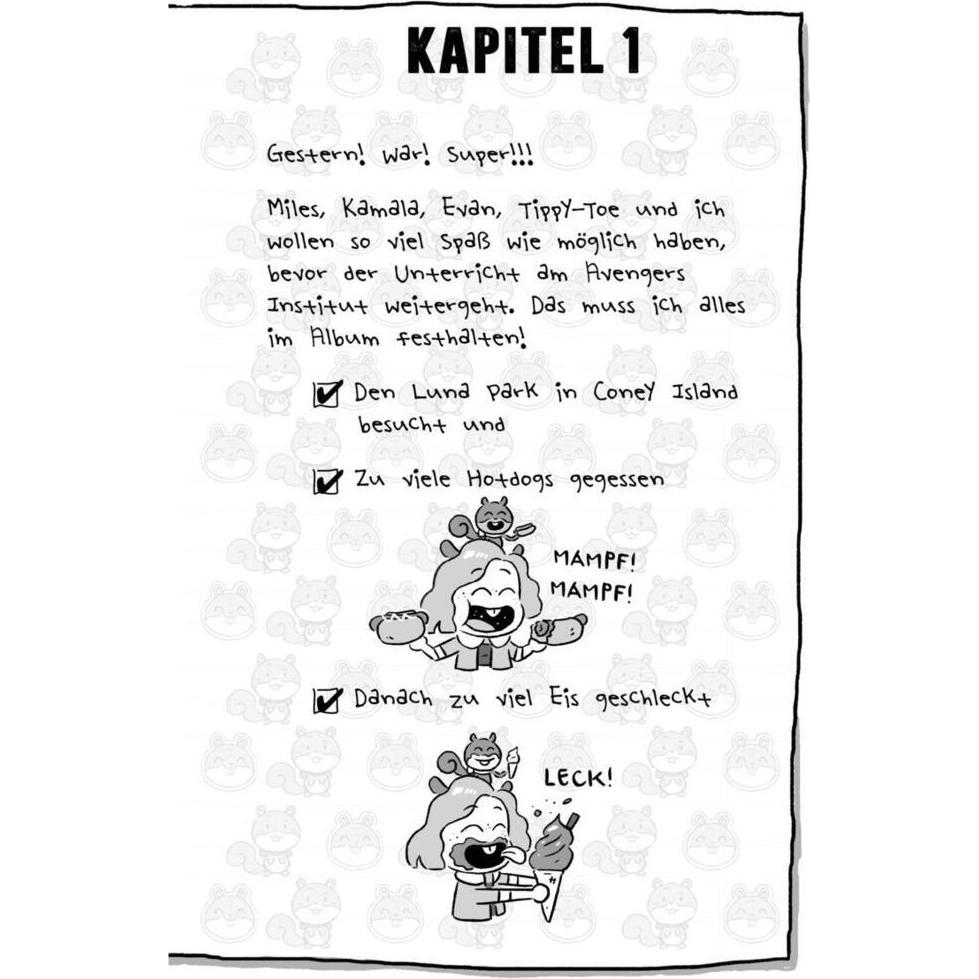 KAPITEL 1
Gestern! War! Super!!!
Miles, Kamala, Evan, Tippy-Toe und ich
wollen so viel Spaß wie möglich haben,
bevor der Unterricht am Avengers
Institut weitergeht. Das muss ich alles
im Album festhalten!
Den Luna Park in Coney Island
besucht und
Zu viele Hotdogs gegessen
MAMPF!
MAMPF!
Danach zu viel Eis geschleckt
LECK!